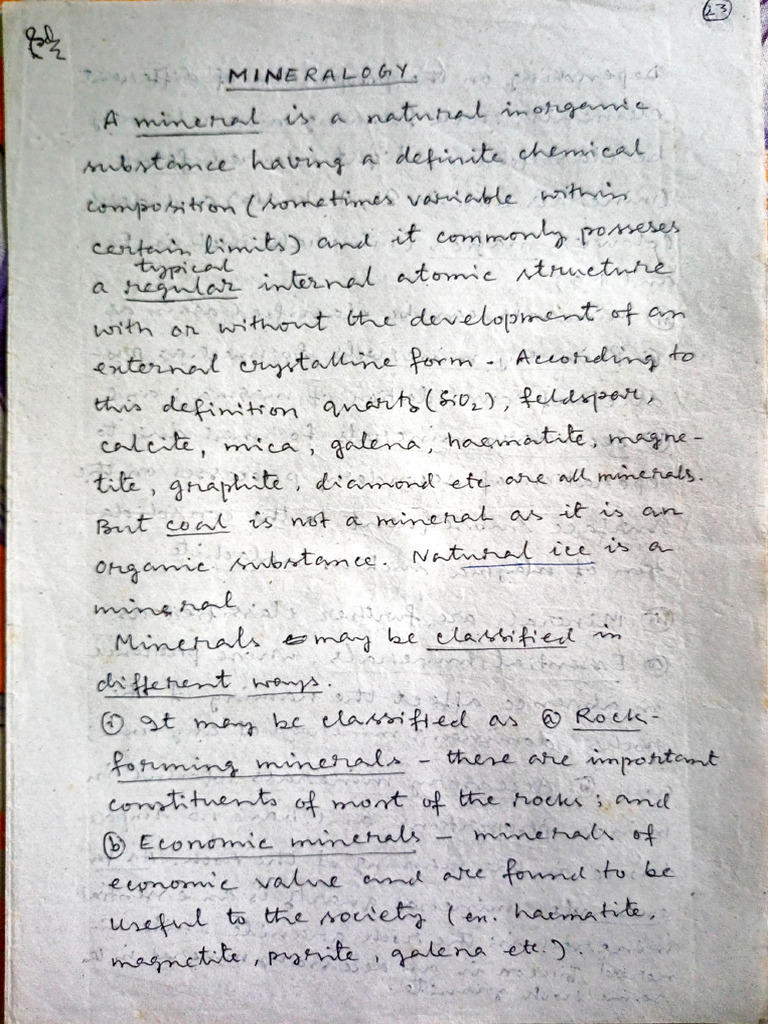 23
MINERALOGY.
A mineral is a natural inorganic
substance having a definite chemical
composition (sometimes variable within
certain limits) and it commonly posseses
typical
a regular internal atomic structure
with or without the development of an
external crystalline form. According to
this definition quartz (SiO₂), feldspar,
calcite, mica, galena, haematite, magne-
tite, graphite, diamond etc are all minerals.
But coal is not a mineral as it is an
organic substance. Natural ice is a
mineral
Minerals may be classified in
different ways.
(i) It may be classified as (a) Rock-
forming minerals - these are important
constituents of most of the rocks; and
(b) Economic minerals - minerals of
economic value and are found to be
useful to the society (ex. haematite,
magnetite, pyrite, galena etc.).